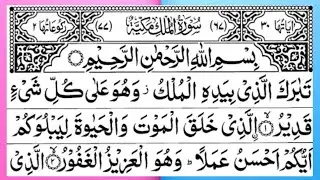 اٰيَاتُهَا ٣٠ (٦٧) سُوْرَةُ الْمُلْكِ مَكِّيَّةٌ (٧٧) رُكُوْعَاتُهَا ٢
بِسْمِ اللّٰهِ الرَّحْمٰنِ الرَّحِيْمِ
تَبٰرَكَ الَّذِيْ بِيَدِهِ الْمُلْكُ ز وَهُوَ عَلٰى كُلِّ شَيْءٍ
قَدِيْرُ ۙ﴿١﴾ ۨالَّذِيْ خَلَقَ الْمَوْتَ وَالْحَيٰوةَ لِيَبْلُوَكُمْ
اَيُّكُمْ اَحْسَنُ عَمَلًا ؕ وَهُوَ الْعَزِيْزُ الْغَفُوْرُ ۙ﴿٢﴾ الَّذِيْ